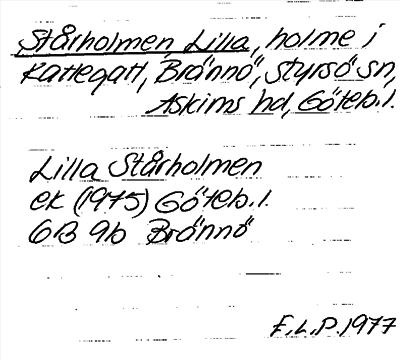 Stårholmen, Lilla, holme i
Kattegatt, Brännö, Styrsö sn,
Askims hd, Göteb. l.
Lilla Stårholmen
ek (1975) Göteb. l.
6B 9b Brännö
F.L.P. 1977